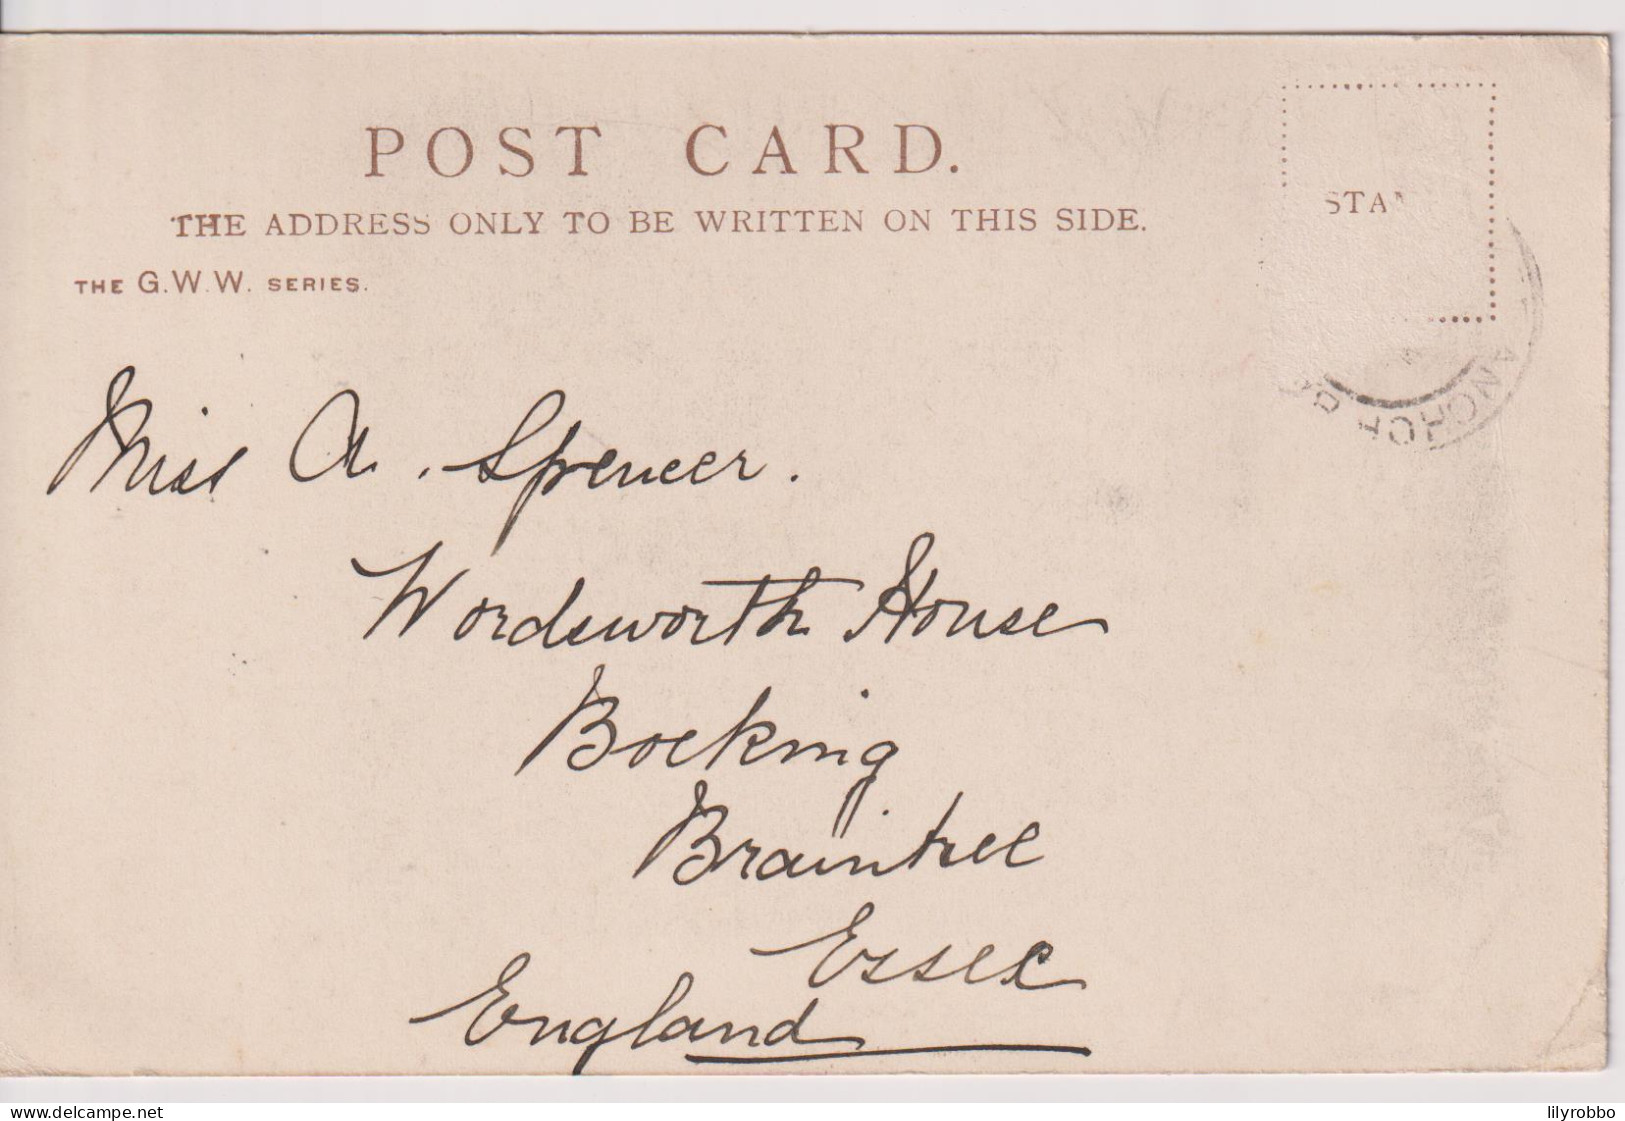 POST CARD.
THE ADDRESS ONLY TO BE WRITTEN ON THIS SIDE.
THE G.W.W. SERIES.
STA
ANCHORY
Miss A. Spencer.
Wordsworth House
Bocking
Braintree
Essex
England
lilyrobbo